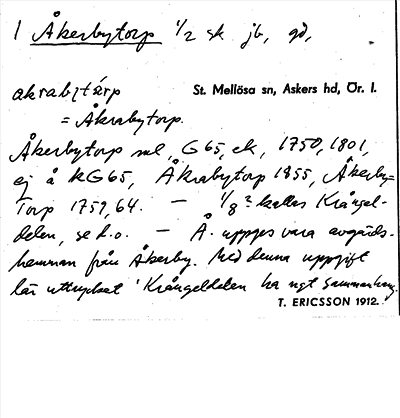 1 Åkerbytorp 1/2 sk jb, gd,
St. Mellösa sn, Askers hd, Ör. l.
= Åkrabytorp.
Åkerbytorp ml, G 65, ek, 1750, 1801,
ej å kG65, Åkrabytorp 1855, Åkerby-
torp 1759, 64. — 1/8 kallas Krångel-
delen, se d.o. — Å. uppges vara avgärds-
hemman från Åkerby. Med denna uppgift
lär uttrycket 'Krångeldelen ha ngt sammanhang.
T. ERICSSON 1912.